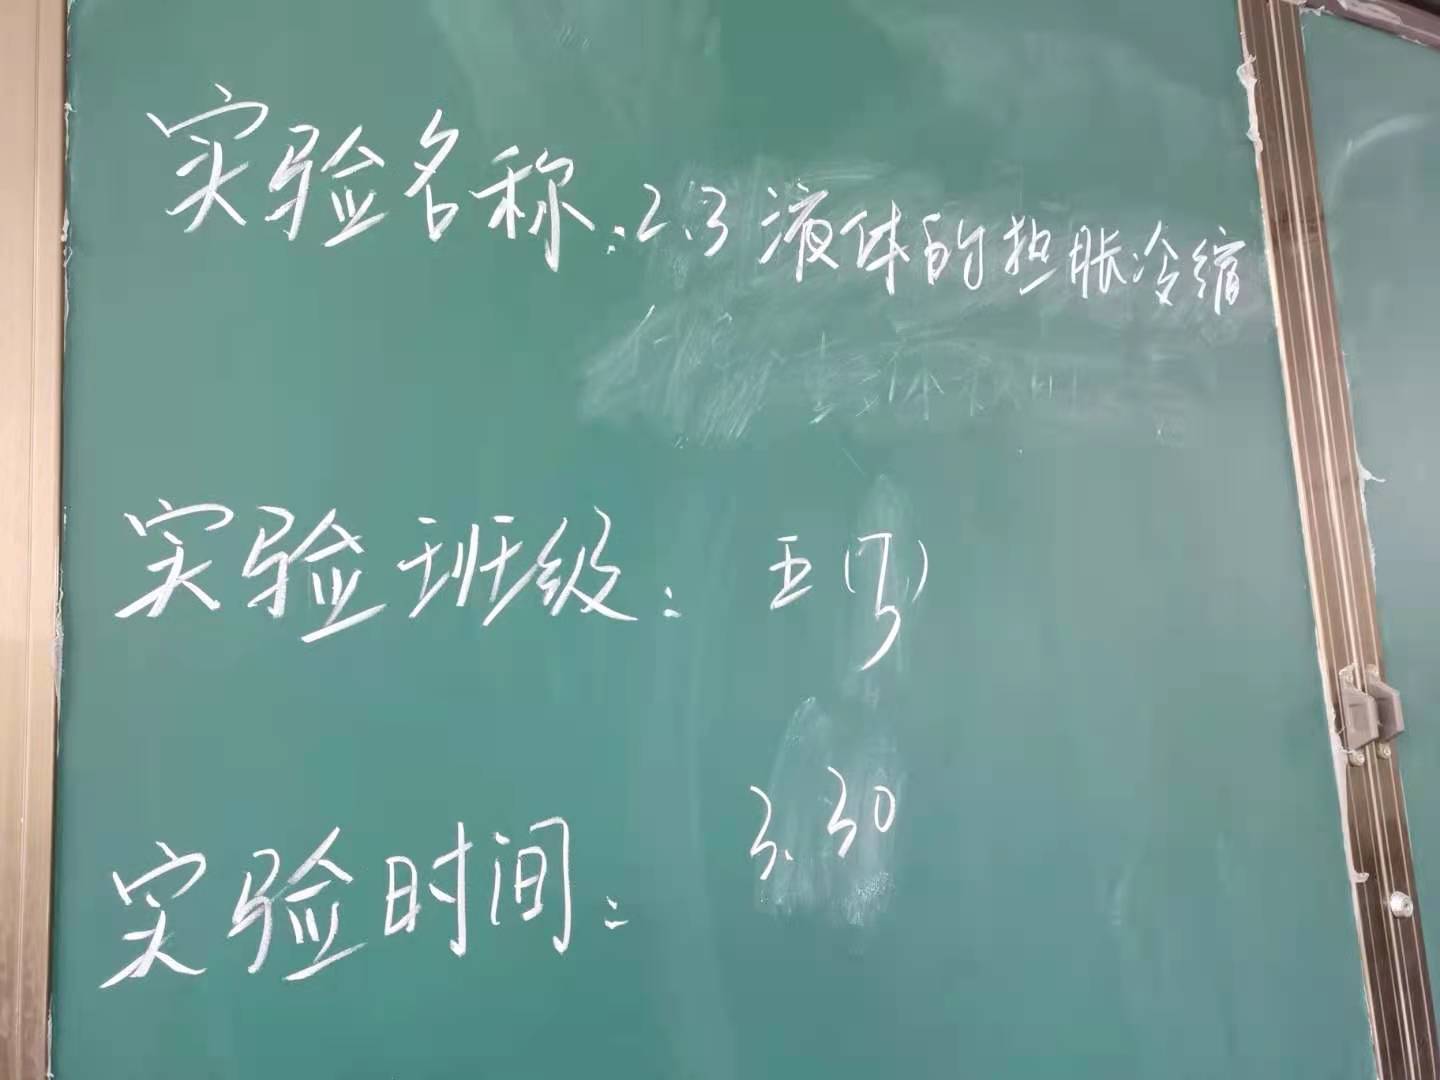 实验名称:2.3液体的热胀冷缩
实验班级:五(3)
实验时间:3.30